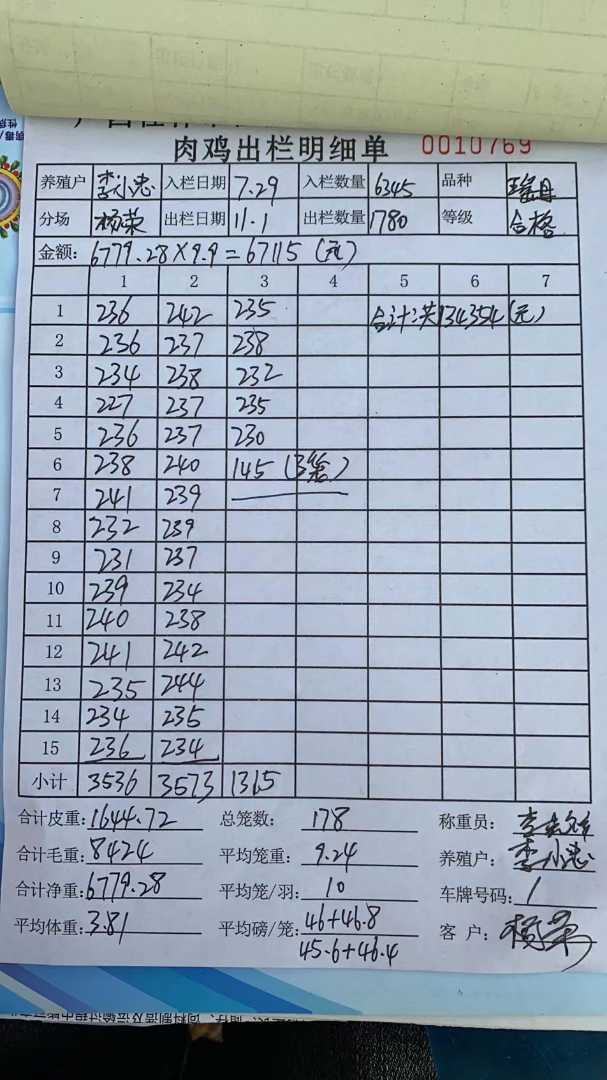 肉鸡出栏明细单 0010769
养殖户 李小忠 入栏日期 7.29 入栏数量 6345 品种
分场 杨荣 出栏日期 11.1 出栏数量 1780 等级 合格
金额: 6779.28×9.9=67115(元)
1 2 3 4 5 6 7
1 236 242 235 合计:共134354(元)
2 236 237 238
3 234 238 232
4 227 237 235
5 236 237 230
6 238 240 145(3笼)
7 241 239
8 232 239
9 231 237
10 239 234
11 240 238
12 241 242
13 235 244
14 234 235
15 236 234
小计 3536 3573 1315
合计皮重: 1644.72 总笼数: 178 称重员:
合计毛重: 8424 平均笼重: 9.24 养殖户: 李小忠
合计净重: 6779.28 平均笼/羽: 10 车牌号码: 1
平均体重: 3.81 平均磅/笼: 46+46.8 客 户: 杨荣
45.6+46.4